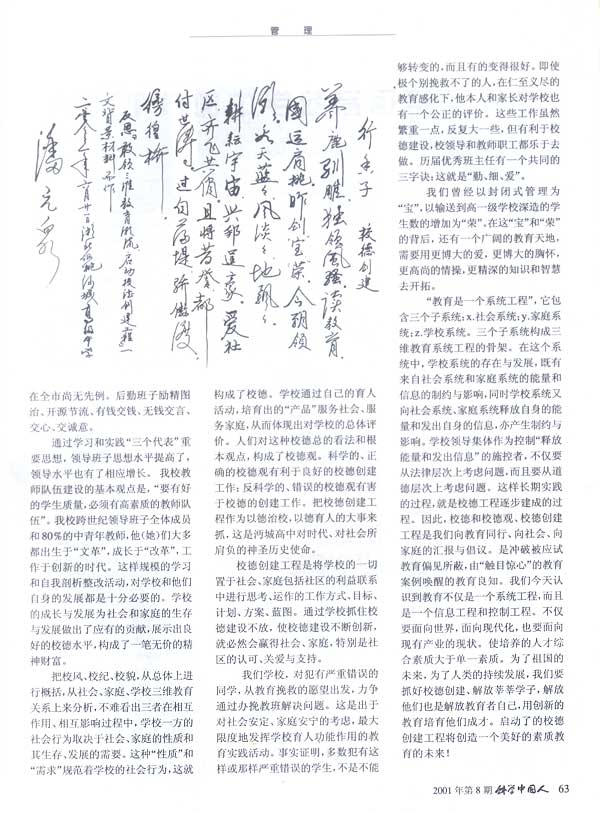 管 理
行香子 校德创建
养鹿驯
国运肩挑
天蓝蓝
耕耘宇宙
在全市尚无先例。后勤班子励精图
治、开源节流、有钱交钱、无钱交言、
交心、交诚意。
通过学习和实践“三个代表”重
要思想，领导班子思想水平提高了，
领导水平也有了相应增长。我校教
师队伍建设的基本观点是，“要有好
的学生质量，必须有高素质的教师队
伍”。我校跨世纪领导班子全体成员
和80%的中青年教师，他(她)们大多
都出生于“文革”，成长于“改革”，工
作于创新的时代。这样规模的学习
和自我剖析整改活动，对学校和他们
自身的发展都是十分必要的。学校
的成长与发展为社会和家庭的生存
与发展做出了应有的贡献，展示出良
好的校德水平，构成了一笔无价的精
神财富。
把校风、校纪、校貌，从总体上进
行概括，从社会、家庭、学校三维教育
关系上来分析，不难看出三者在相互
作用、相互影响过程中，学校一方的
社会行为取决于社会、家庭的性质和
其生存、发展的需要。这种“性质”和
“需求”规范着学校的社会行为，这就
构成了校德。学校通过自己的育人
活动，培育出的“产品”服务社会、服
务家庭，从而体现出对学校的总体评
价。人们对这种校德总的看法和根
本观点，构成了校德观。科学的、正
确的校德观有利于良好的校德创建
工作；反科学的、错误的校德观有害
于校德的创建工作。把校德创建工
程作为以德治校，以德育人的大事来
抓，这是沔城高中对时代、对社会所
肩负的神圣历史使命。
校德创建工程是将学校的一切
置于社会、家庭包括社区的利益联系
中进行思考、运作的工作方式、目标、
计划、方案、蓝图。通过学校抓住校
德建设不放，使校德建设不断创新，
就必然会赢得社会、家庭，特别是社
区的认可、关爱与支持。
我们学校，对犯有严重错误的
同学，从教育挽救的愿望出发，力争
通过办挽教班解决问题。这是出于
对社会安定、家庭安宁的考虑，最大
限度地发挥学校育人功能作用的教
育实践活动。事实证明，多数犯有这
样或那样严重错误的学生，不是不能
够转变的，而且有的变得很好。即使
极个别挽救不了的人，在仁至义尽的
教育感化下，他本人和家长对学校也
有一个公正的评价。这些工作虽然
繁重一点，反复大一些，但有利于校
德建设，校领导和教师职工都乐于去
做。历届优秀班主任有一个共同的
三字诀：这就是“勤、细、爱”。
我们曾经以封闭式管理为
“宝”，以输送到高一级学校深造的学
生数的增加为“荣”。在这“宝”和“荣”
的背后，还有一个广阔的教育天地，
需要用更博大的爱，更博大的胸怀，
更高尚的情操，更精深的知识和智慧
去开拓。
“教育是一个系统工程”，它包
含三个子系统；x.社会系统；y.家庭系
统；z.学校系统。三个子系统构成三
维教育系统工程的骨架。在这个系
统中，学校系统的存在与发展，既有
来自社会系统和家庭系统的能量和
信息的制约与影响，同时学校系统又
向社会系统、家庭系统释放自身的能
量和发出自身的信息，亦产生制约与
影响。学校领导集体作为控制“释放
能量和发出信息”的施控者，不仅要
从法律层次上考虑问题，而且要从道
德层次上考虑问题。这样长期实践
的过程，就是校德工程逐步建成的过
程。因此，校德和校德观、校德创建
工程是我们向教育同行、向社会、向
家庭的汇报与倡议。是冲破被应试
教育偏见所蔽，由“触目惊心”的教育
案例唤醒的教育良知。我们今天认
识到教育不仅是一个系统工程，而且
是一个信息工程和控制工程。不仅
要面向世界，面向现代化，也要面向
现有产业的现状。使培养的人才综
合素质大于单一素质。为了祖国的
未来，为了人类的持续发展，我们要
抓好校德创建、解放莘莘学子，解放
他们也是解放教育者自己，用创新的
教育培育他们成才。启动了的校德
创建工程将创造一个美好的素质教
育的未来！
2001年第8期 科学中国人 63